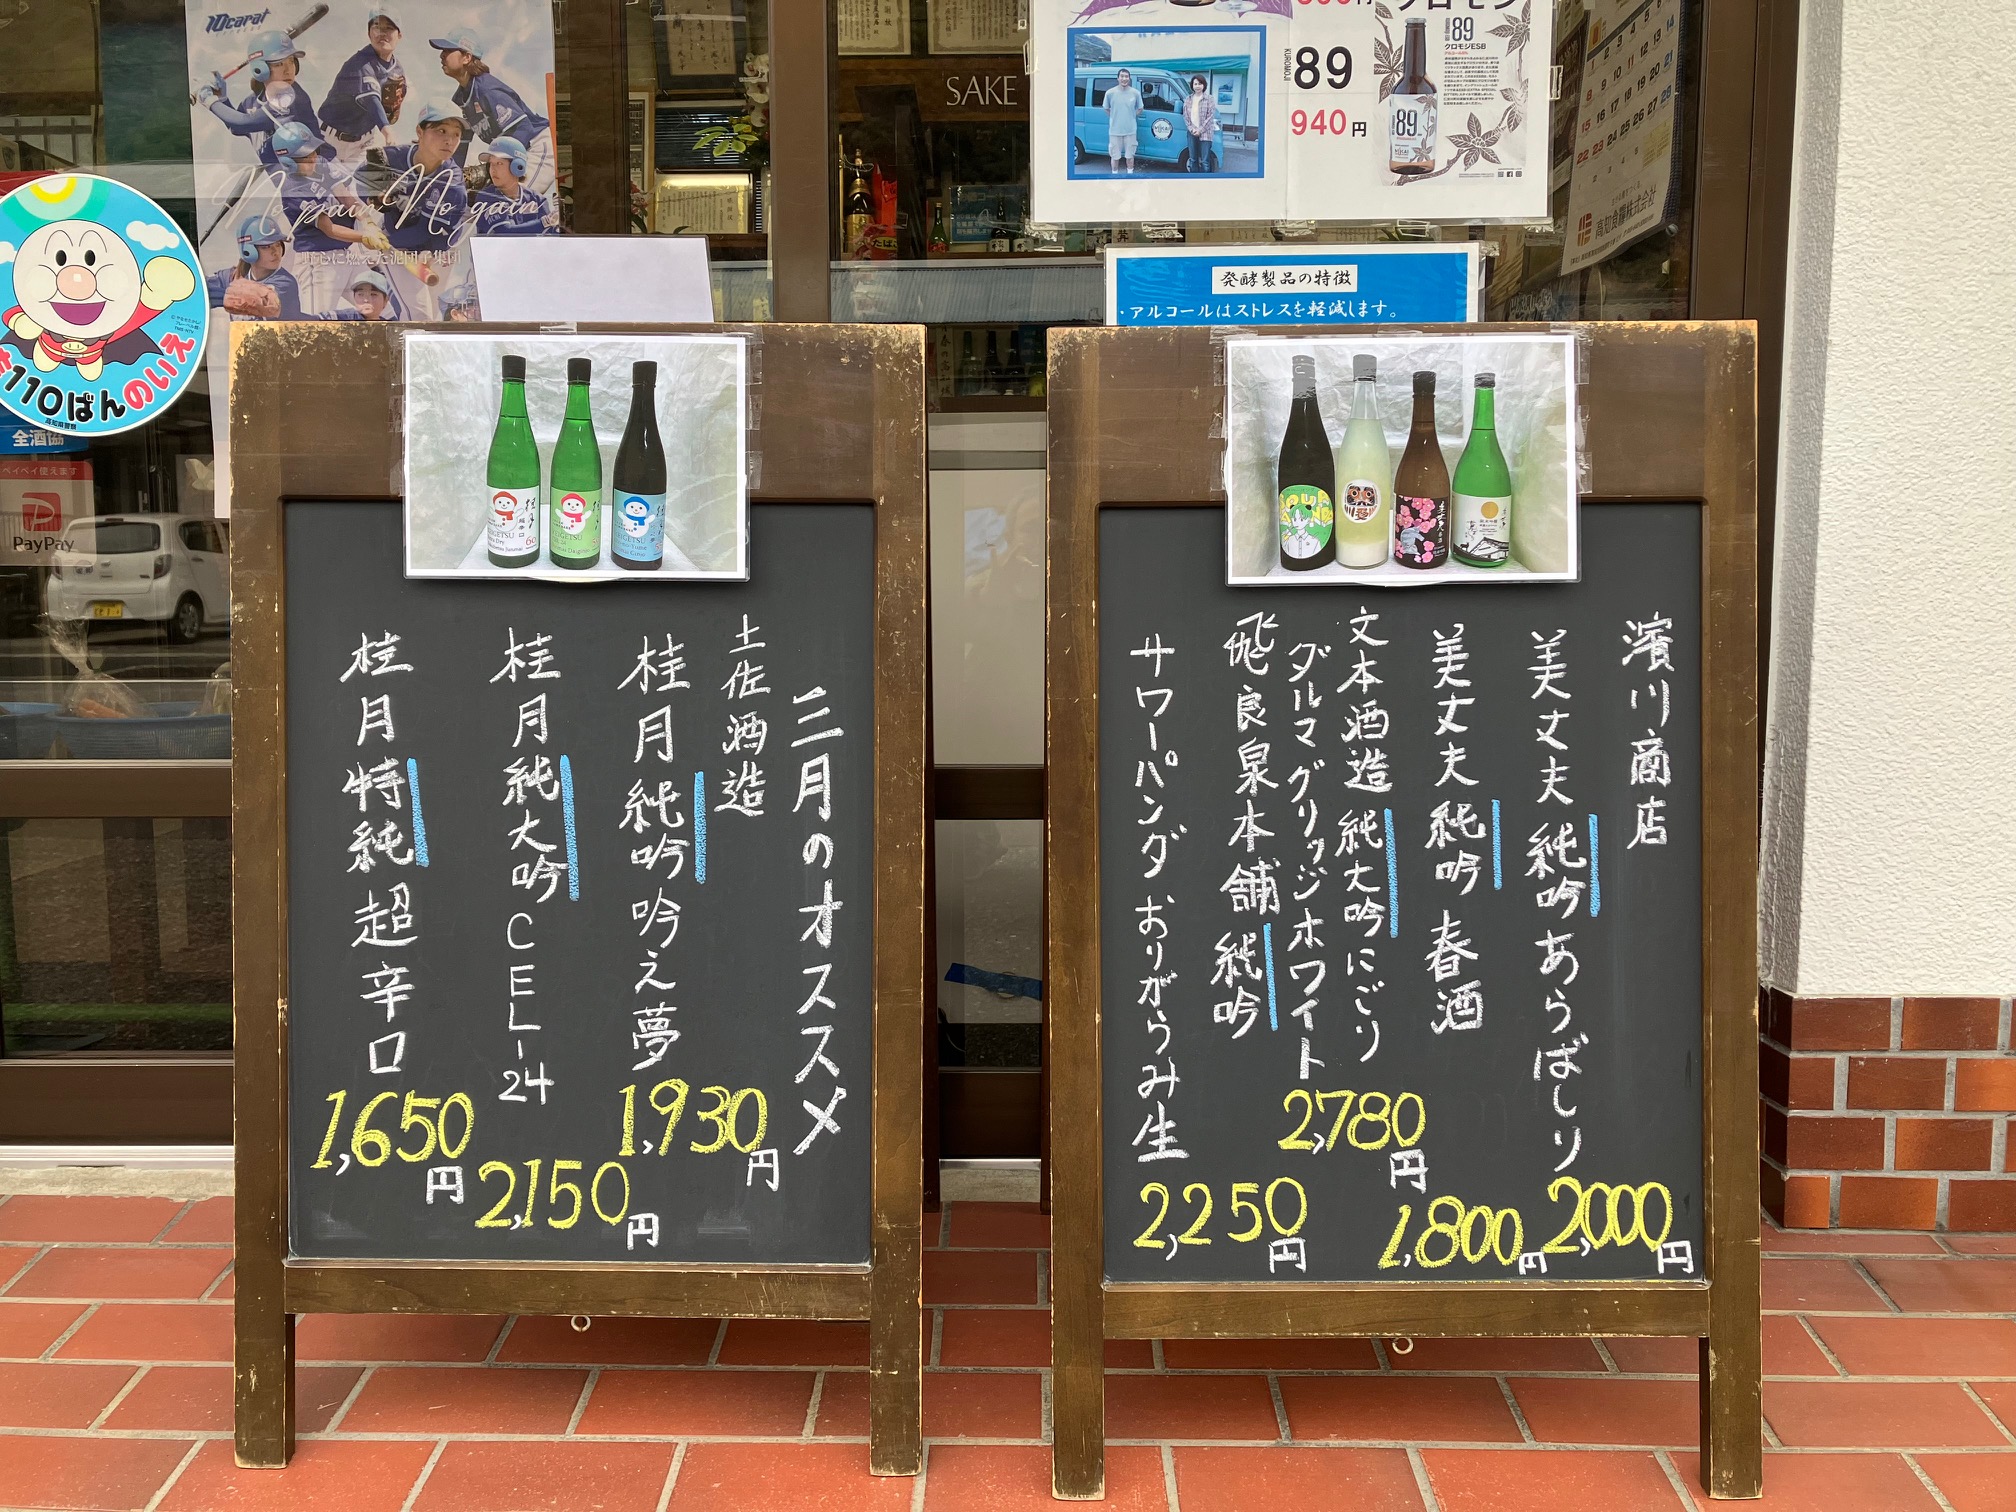 10carat
No pain No gain
野心に燃えた泥団子集団
SAKE
89
KUROMOJI
940円
89
クロモジESB
89
発酵製品の特徴
・アルコールはストレスを軽減します。
高知食糧株式会社
110ばんのいえ
高知県警察
全酒協
ペイペイ使えます
PayPay
三月のオススメ
土佐酒造
桂月 純吟 吟之夢
1,930円
桂月 純大吟 CEL-24
2,150円
桂月 特純 超辛口
1,650円
濱川商店
美丈夫 純吟 あらばしり
2,000円
美丈夫 純吟 春酒
1,800円
文本酒造 純大吟 にごり
ダルマグリッジホワイト
2,780円
飛良泉本舗 純吟
サワーパンダ おりがらみ生
2,250円